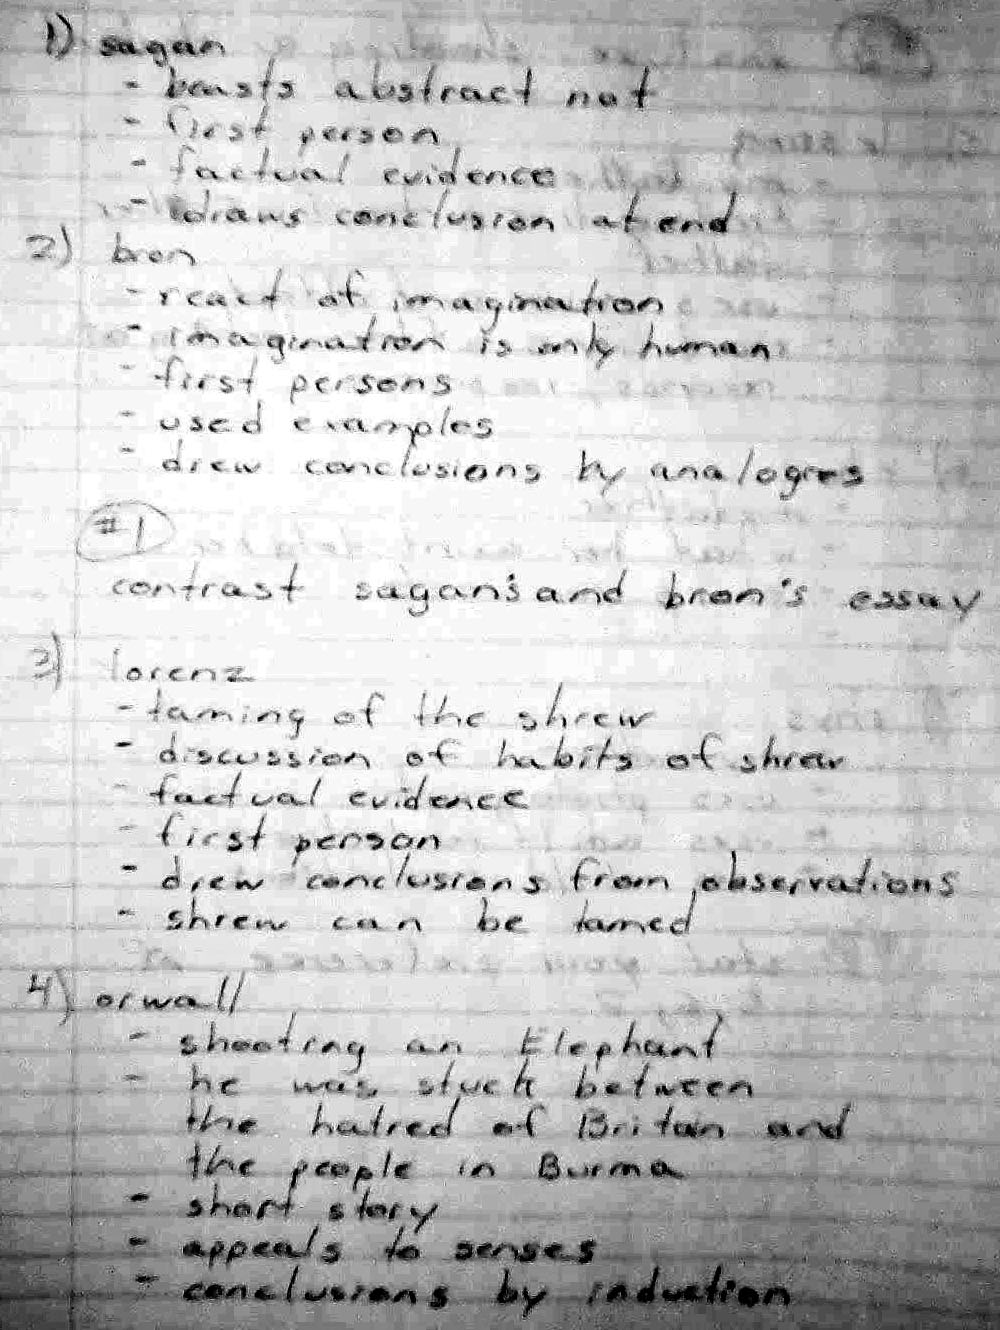 1) sagan
- beasts abstract not
- first person
- factual evidence
- draws conclusion at end
2) bron
- react of imagination
- imagination is only human
- first persons
- used examples
- drew conclusions by analogies
#1
contrast sagan's and bron's essay
3) lorenz
- taming of the shrew
- discussion of habits of shrew
- factual evidence
- first person
- drew conclusions from observations
- shrew can be tamed
4) orwall
- shooting an Elephant
- he was stuck between
the hatred of Britain and
the people in Burma
- short story
- appeals to senses
- conclusions by induction